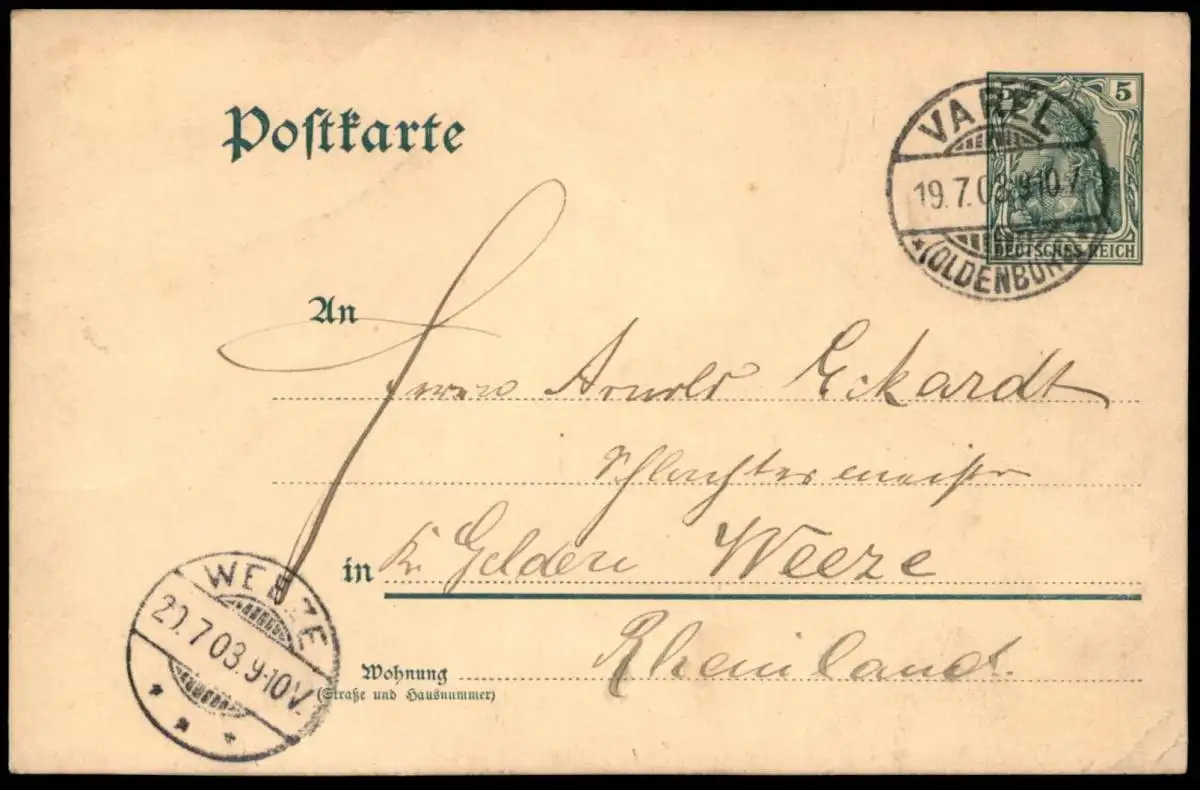 Postkarte
5
DEUTSCHES REICH
VAREL
19.7.03.9-10.V.
*(OLDENBURG)*
An
Herrn Arnold Eckardt
Schlachtermeister
in Kr. Geldern Weeze
Rheinland.
Wohnung
(Straße und Hausnummer)
WEEZE
20.7.03.9-10V.